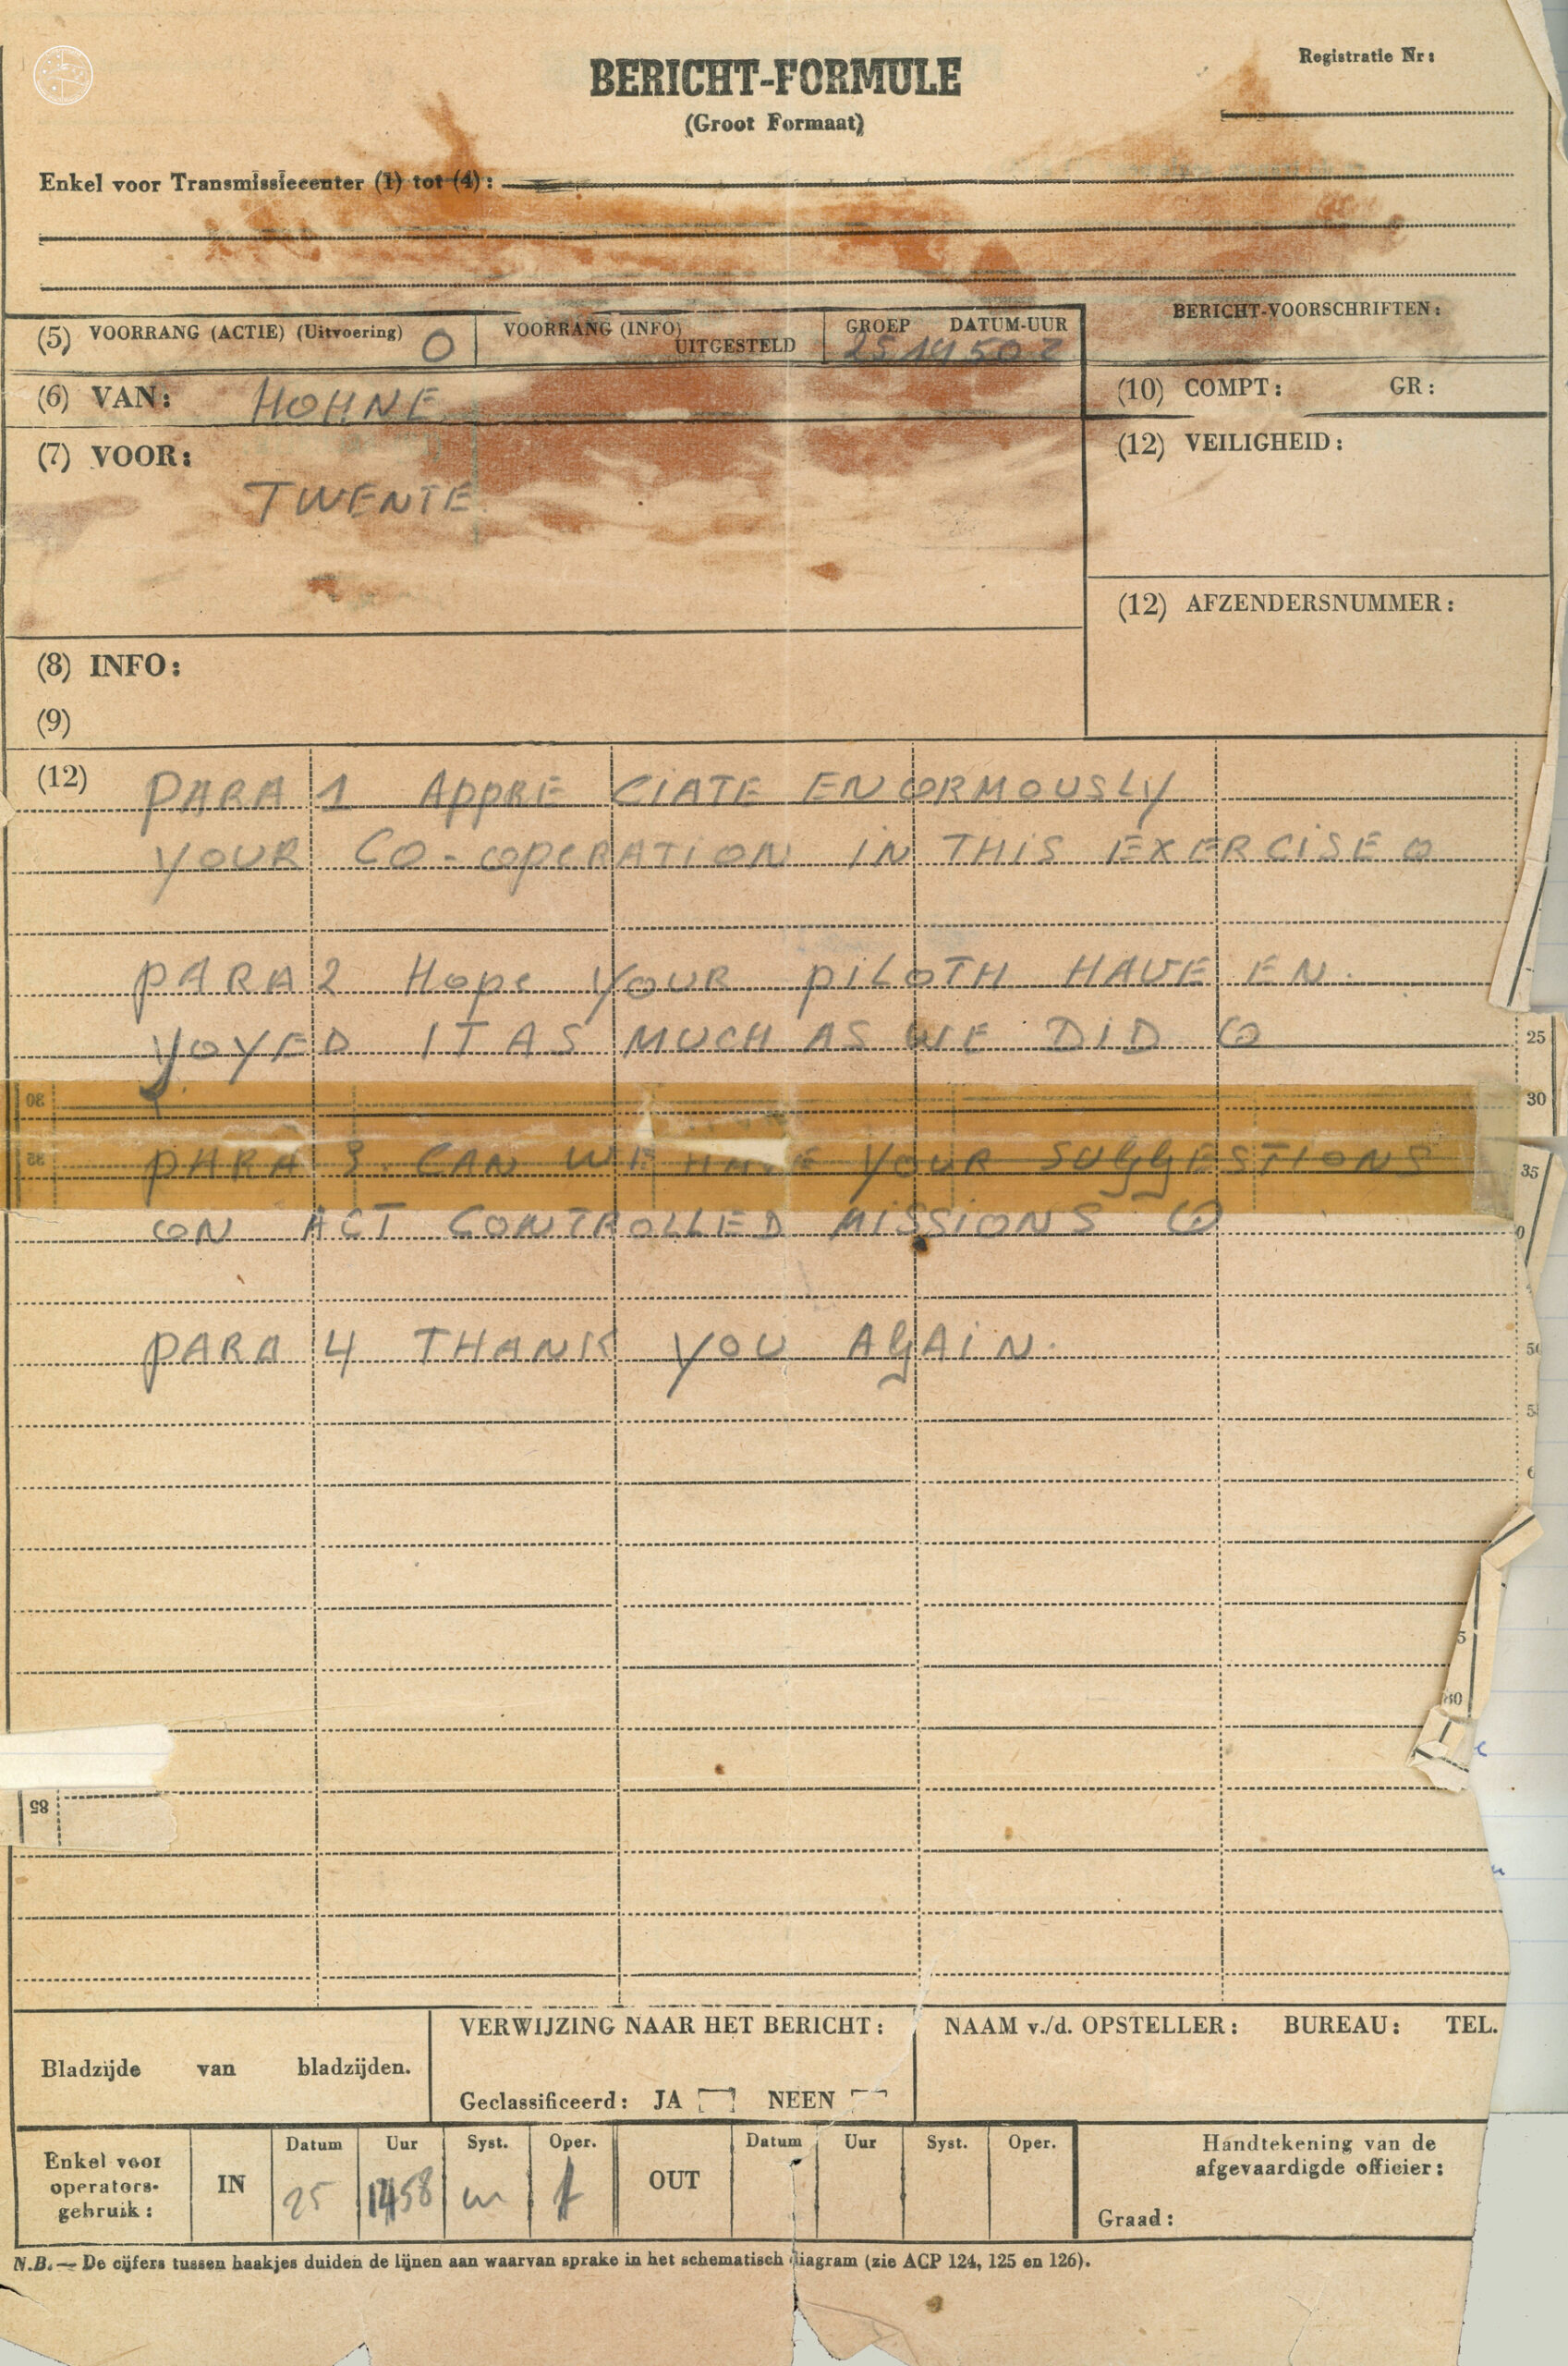 BERICHT-FORMULE
(Groot Formaat)
Registratie Nr:
Enkel voor Transmissiecenter (1) tot (4):
(5) VOORRANG (ACTIE) (Uitvoering) O
VOORRANG (INFO) UITGESTELD
GROEP DATUM-UUR
251450Z
BERICHT-VOORSCHRIFTEN:
(6) VAN: HOHNE
(10) COMPT: GR:
(7) VOOR:
TWENTE
(12) VEILIGHEID:
(12) AFZENDERSNUMMER:
(8) INFO:
(9)
(12) PARA 1 APPRECIATE ENORMOUSLY
YOUR CO-OPERATION IN THIS EXERCISE
PARA 2 HOPE YOUR PILOTH HAVE EN.
YOYED IT AS MUCH AS WE DID
25
30
30
PARA 3. CAN WE HAVE YOUR SUGGESTIONS
35
35
ON ACT CONTROLLED MISSIONS
PARA 4 THANK YOU AGAIN.
85
Bladzijde van bladzijden.
VERWIJZING NAAR HET BERICHT:
Geclassificeerd: JA NEEN
NAAM v./d. OPSTELLER: BUREAU: TEL.
Enkel voor operators-gebruik:
IN
Datum Uur Syst. Oper.
25 1458 m
OUT
Datum Uur Syst. Oper.
Handtekening van de
afgevaardigde officier:
Graad:
N.B. — De cijfers tussen haakjes duiden de lijnen aan waarvan sprake in het schematisch diagram (zie ACP 124, 125 en 126).